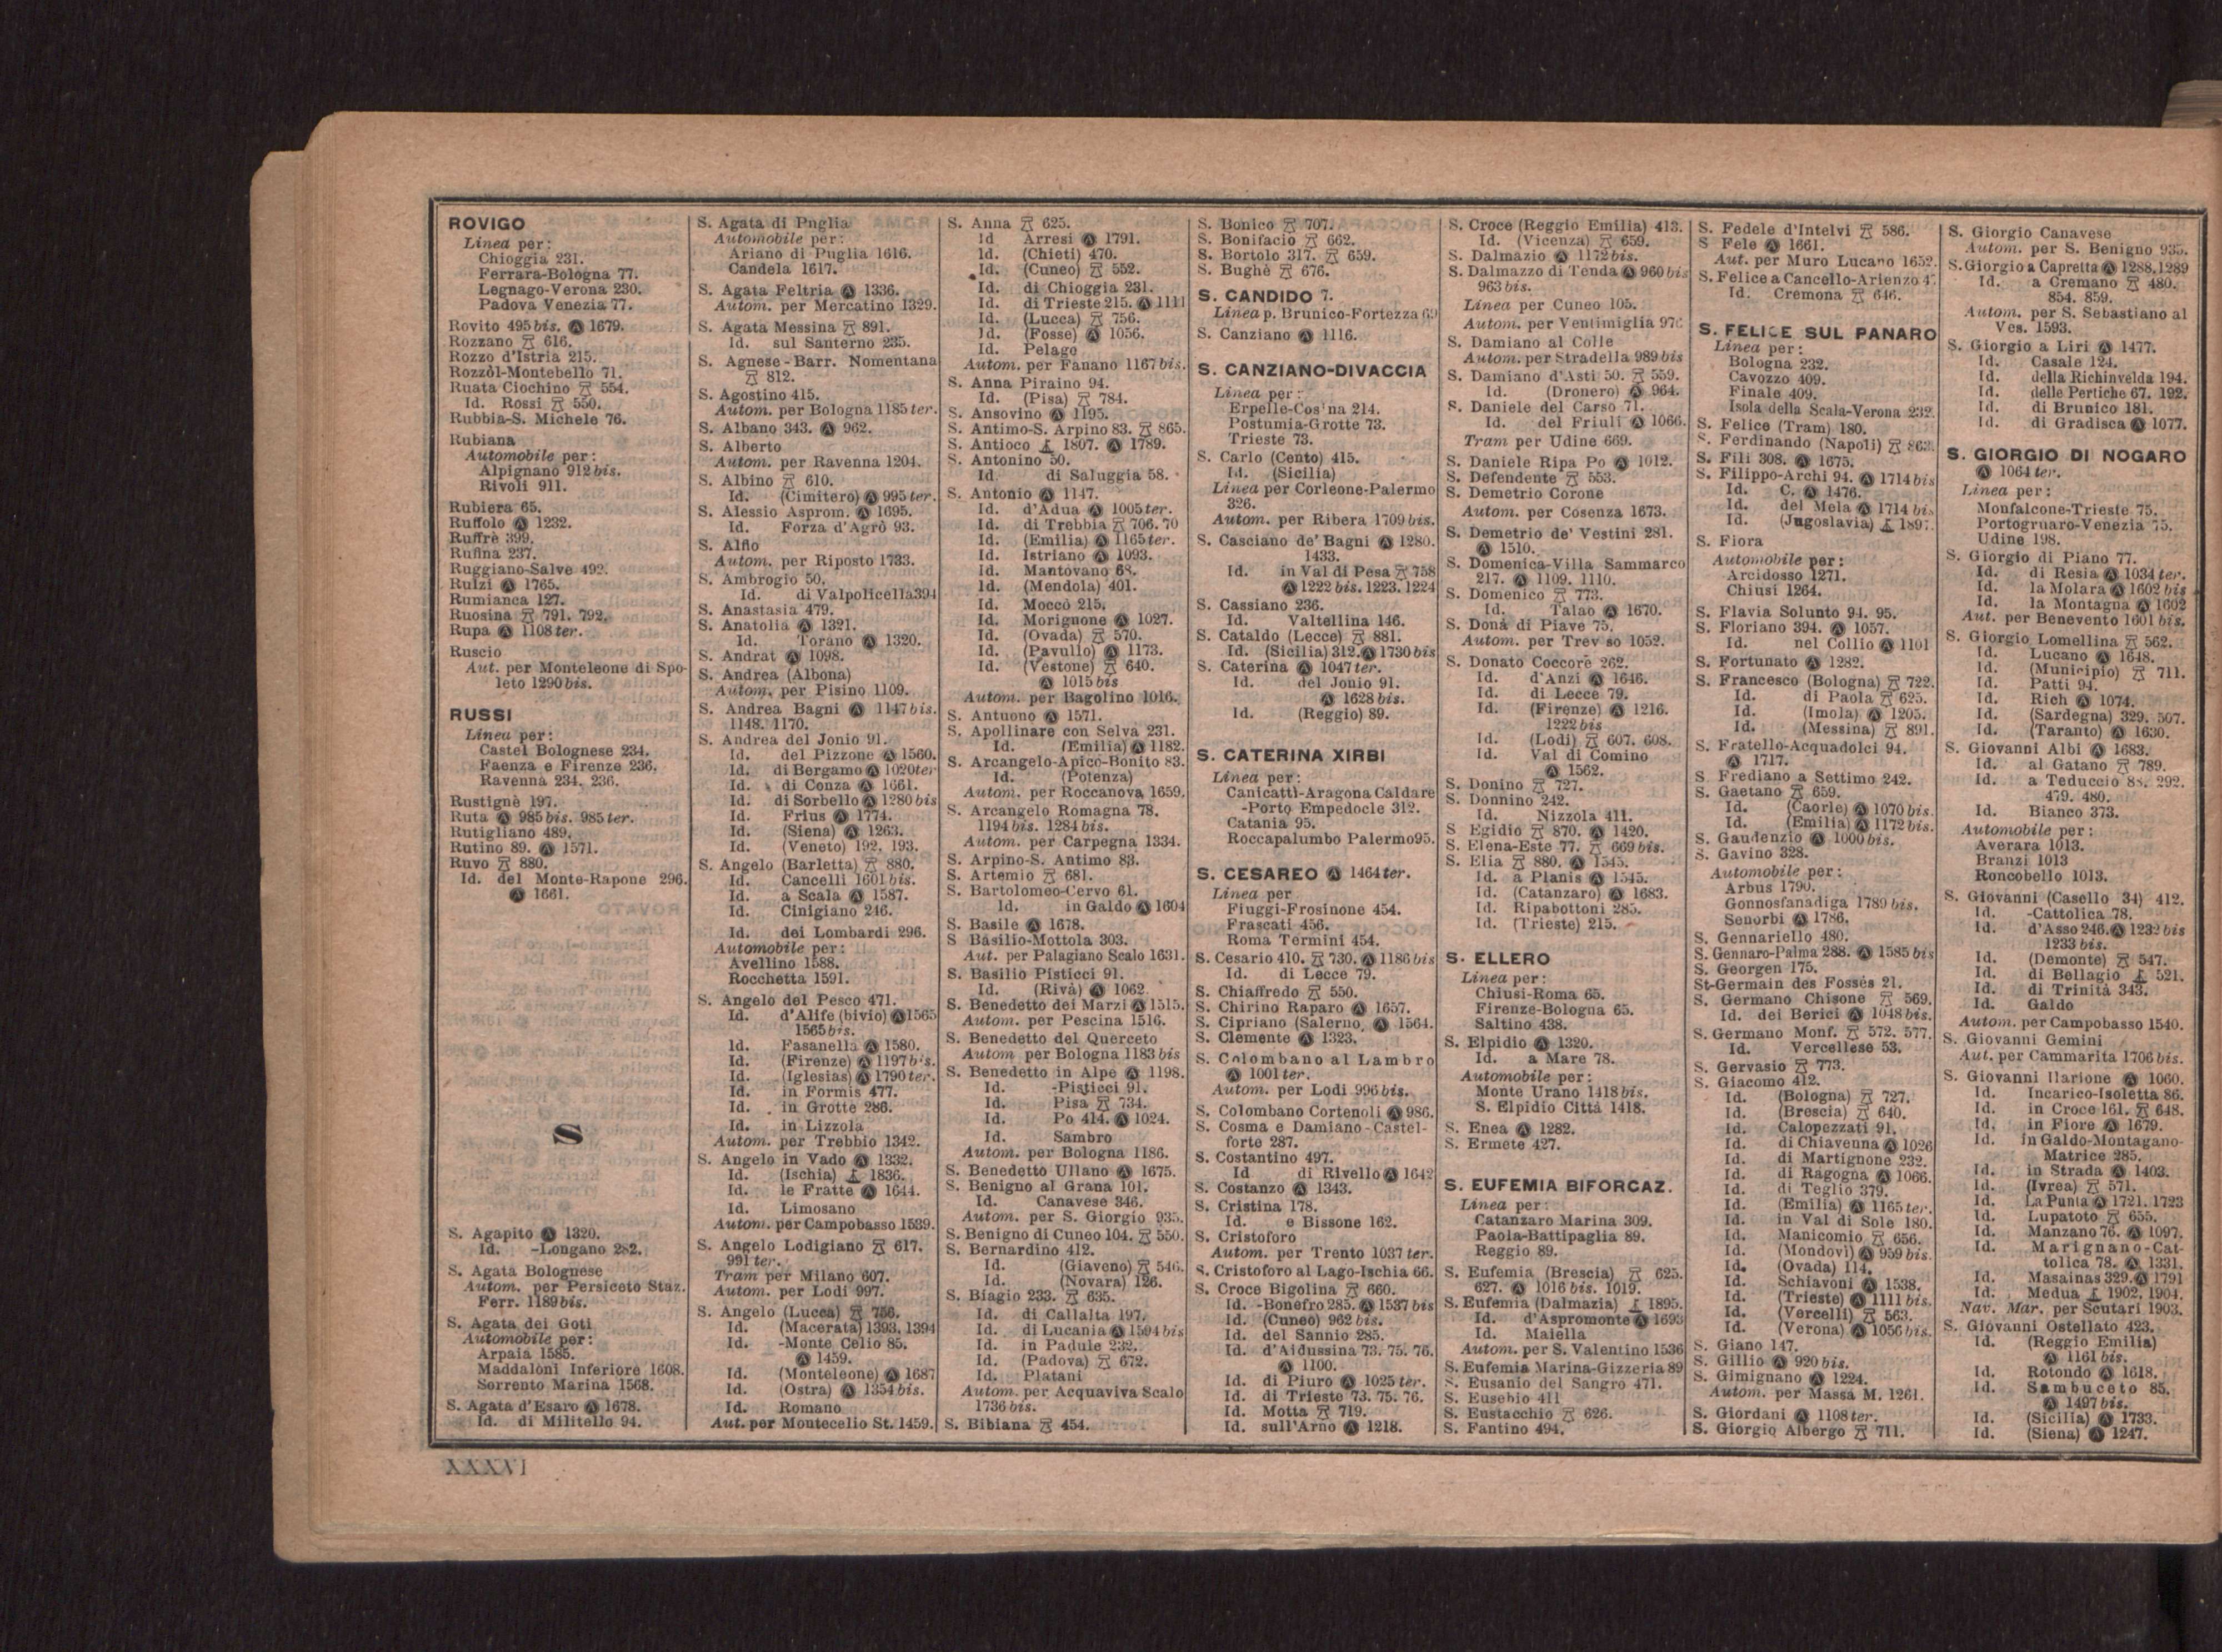 ROVIGO
Linea per:
Chioggia 231.
Ferrara-Bologna 77.
Legnago-Verona 230.
Padova Venezia 77.
Rovito 495 bis. Ⓐ 1679.
Rozzano 616.
Rozzo d'Istria 215.
Rozzòl-Montebello 71.
Ruata Ciochino 554.
Id. Rossi 550.
Rubbia-S. Michele 76.
Rubiana
Automobile per:
Alpignano 912 bis.
Rivoli 911.
Rubiera 65.
Ruffolo Ⓐ 1232.
Ruffrè 399.
Rufina 237.
Ruggiano-Salve 492.
Rulzi Ⓐ 1765.
Rumianca 127.
Ruosina 791. 792.
Rupa Ⓐ 1108 ter.
Ruscio
Aut. per Monteleone di Spo-
leto 1290 bis.
RUSSI
Linea per:
Castel Bolognese 234.
Faenza e Firenze 236.
Ravenna 234. 236.
Rustignè 197.
Ruta Ⓐ 985 bis. 985 ter.
Rutigliano 489.
Rutino 89. Ⓐ 1571.
Ruvo 880.
Id. del Monte-Rapone 296.
Ⓐ 1661.
S
S. Agapito Ⓐ 1320.
Id. -Longano 282.
S. Agata Bolognese
Autom. per Persiceto Staz.
Ferr. 1189 bis.
S. Agata dei Goti
Automobile per:
Arpaia 1585.
Maddaloni Inferiore 1608.
Sorrento Marina 1568.
S. Agata d'Esaro Ⓐ 1678.
Id. di Militello 94.
S. Agata di Puglia
Automobile per:
Ariano di Puglia 1616.
Candela 1617.
S. Agata Feltria Ⓐ 1336.
Autom. per Mercatino 1329.
S. Agata Messina 891.
Id. sul Santerno 235.
S. Agnese - Barr. Nomentana
812.
S. Agostino 415.
Autom. per Bologna 1185 ter.
S. Albano 343. Ⓐ 962.
S. Alberto
Autom. per Ravenna 1204.
S. Albino 610.
Id. (Cimitero) Ⓐ 995 ter.
S. Alessio Asprom. Ⓐ 1695.
Id. Forza d'Agrò 93.
S. Alfio
Autom. per Riposto 1733.
S. Ambrogio 50.
Id. di Valpolicella 394
S. Anastasia 479.
S. Anatolia Ⓐ 1321.
Id. Torano Ⓐ 1320.
S. Andrat Ⓐ 1098.
S. Andrea (Albona)
Autom. per Pisino 1109.
S. Andrea Bagni Ⓐ 1147 bis.
1148. 1170.
S. Andrea del Jonio 91.
Id. del Pizzone Ⓐ 1560.
Id. di Bergamo Ⓐ 1020 ter
Id. di Conza Ⓐ 1661.
Id. di Sorbello Ⓐ 1280 bis
Id. Frius Ⓐ 1774.
Id. (Siena) Ⓐ 1263.
Id. (Veneto) 192. 193.
S. Angelo (Barletta) 880.
Id. Cancelli 1601 bis.
Id. a Scala Ⓐ 1587.
Id. Cinigiano 246.
Id. dei Lombardi 296.
Automobile per:
Avellino 1588.
Rocchetta 1591.
S. Angelo del Pesco 471.
Id. d'Alife (bivio) Ⓐ 1565
1565 bis.
Id. Fasanella Ⓐ 1580.
Id. (Firenze) Ⓐ 1197 bis.
Id. (Iglesias) Ⓐ 1790 ter.
Id. in Formis 477.
Id. in Grotte 286.
Id. in Lizzola
Autom. per Trebbio 1342.
S. Angelo in Vado Ⓐ 1332.
Id. (Ischia) 1836.
Id. le Fratte Ⓐ 1644.
Id. Limosano
Autom. per Campobasso 1539.
S. Angelo Lodigiano 617.
991 ter.
Tram per Milano 607.
Autom. per Lodi 997.
S. Angelo (Lucca) 756.
Id. (Macerata) 1393. 1394
Id. -Monte Celio 85.
Ⓐ 1459.
Id. (Monteleone) Ⓐ 1687
Id. (Ostra) Ⓐ 1354 bis.
Id. Romano
Aut. per Montecelio St. 1459.
S. Anna 625.
Id Arresi Ⓐ 1791.
Id. (Chieti) 470.
Id. (Cuneo) 552.
Id. di Chioggia 231.
Id. di Trieste 215. Ⓐ 1111
Id. (Lucca) 756.
Id. (Fosse) Ⓐ 1056.
Id. Pelago
Autom. per Fanano 1167 bis.
S. Anna Piraino 94.
Id. (Pisa) 784.
S. Ansovino Ⓐ 1195.
S. Antimo-S. Arpino 83. 865.
S. Antioco 1807. Ⓐ 1789.
S. Antonino 50.
Id. di Saluggia 58.
S. Antonio Ⓐ 1147.
Id. d'Adua Ⓐ 1005 ter.
Id. di Trebbia 706. 70
Id. (Emilia) Ⓐ 1165 ter.
Id. Istriano Ⓐ 1093.
Id. Mantovano 68.
Id. (Mendola) 401.
Id. Moccò 215.
Id. Morignone Ⓐ 1027.
Id. (Ovada) 570.
Id. (Pavullo) Ⓐ 1173.
Id. (Vestone) 640.
Ⓐ 1015 bis
Autom. per Bagolino 1016.
S. Antuono Ⓐ 1571.
S. Apollinare con Selva 231.
Id. (Emilia) Ⓐ 1182.
S. Arcangelo-Apico-Bonito 83.
Id. (Potenza)
Autom. per Roccanova 1659.
S. Arcangelo Romagna 78.
1194 bis. 1284 bis.
Autom. per Carpegna 1334.
S. Arpino-S. Antimo 83.
S. Artemio 681.
S. Bartolomeo-Cervo 61.
Id. in Galdo Ⓐ 1604
S. Basile Ⓐ 1678.
S Basilio-Mottola 303.
Aut. per Palagiano Scalo 1631.
S. Basilio Pisticci 91.
Id. (Rivà) Ⓐ 1062.
S. Benedetto dei Marzi Ⓐ 1515.
Autom. per Pescina 1516.
S. Benedetto del Querceto
Autom per Bologna 1183 bis
S. Benedetto in Alpe Ⓐ 1198.
Id. -Pisticci 91.
Id. Pisa 734.
Id. Po 414. Ⓐ 1024.
Id. Sambro
Autom. per Bologna 1186.
S. Benedetto Ullano Ⓐ 1675.
S. Benigno al Grana 101.
Id. Canavese 346.
Autom. per S. Giorgio 935.
S. Benigno di Cuneo 104. 550.
S. Bernardino 412.
Id. (Giaveno) 546.
Id. (Novara) 126.
S. Biagio 233. 635.
Id. di Callalta 197.
Id. di Lucania Ⓐ 1594 bis
Id. in Padule 232.
Id. (Padova) 672.
Id. Platani
Autom. per Acquaviva Scalo
1736 bis.
S. Bibiana 454.
S. Bonico 707.
S. Bonifacio 662.
S. Bortolo 317. 659.
S. Bughè 676.
S. CANDIDO 7.
Linea p. Brunico-Fortezza 69
S. Canziano Ⓐ 1116.
S. CANZIANO-DIVACCIA
Linea per:
Erpelle-Cosina 214.
Postumia-Grotte 73.
Trieste 73.
S. Carlo (Cento) 415.
Id. (Sicilia)
Linea per Corleone-Palermo
326.
Autom. per Ribera 1709 bis.
S. Casciano de' Bagni Ⓐ 1280.
1433.
Id. in Val di Pesa 758
Ⓐ 1222 bis. 1223. 1224
S. Cassiano 236.
Id. Valtellina 146.
S. Cataldo (Lecce) 881.
Id. (Sicilia) 312. Ⓐ 1730 bis
S. Caterina Ⓐ 1047 ter.
Id. del Jonio 91.
Ⓐ 1628 bis.
Id. (Reggio) 89.
S. CATERINA XIRBI
Linea per:
Canicattì-Aragona Caldare
-Porto Empedocle 312.
Catania 95.
Roccapalumbo Palermo 95.
S. CESAREO Ⓐ 1464 ter.
Linea per
Fiuggi-Frosinone 454.
Frascati 456.
Roma Termini 454.
S. Cesario 410. 730. Ⓐ 1186 bis
Id. di Lecce 79.
S. Chiaffredo 550.
S. Chirino Raparo Ⓐ 1657.
S. Cipriano (Salerno, Ⓐ 1564.
S. Clemente Ⓐ 1323.
S. Colombano al Lambro
Ⓐ 1001 ter.
Autom. per Lodi 996 bis.
S. Colombano Cortenoli Ⓐ 986.
S. Cosma e Damiano - Castel-
forte 287.
S. Costantino 497.
Id di Rivello Ⓐ 1642
S. Costanzo Ⓐ 1343.
S. Cristina 178.
Id. e Bissone 162.
S. Cristoforo
Autom. per Trento 1037 ter.
S. Cristoforo al Lago-Ischia 66.
S. Croce Bigolina 660.
Id. -Bonefro 285. Ⓐ 1537 bis
Id. (Cuneo) 962 bis.
Id. del Sannio 285.
Id. d'Aidussina 73. 75. 76.
Ⓐ 1100.
Id. di Piuro Ⓐ 1025 ter.
Id. di Trieste 73. 75. 76.
Id. Motta 719.
Id. sull'Arno Ⓐ 1218.
S. Croce (Reggio Emilia) 413.
Id. (Vicenza) 659.
S. Dalmazio Ⓐ 1172 bis.
S. Dalmazzo di Tenda Ⓐ 960 bis
963 bis.
Linea per Cuneo 105.
Autom. per Ventimiglia 970
S. Damiano al Colle
Autom. per Stradella 989 bis
S. Damiano d'Asti 50. 559.
Id. (Dronero) Ⓐ 964.
S. Daniele del Carso 71.
Id. del Friuli Ⓐ 1066.
Tram per Udine 669.
S. Daniele Ripa Po Ⓐ 1012.
S. Defendente 553.
S. Demetrio Corone
Autom. per Cosenza 1673.
S. Demetrio de' Vestini 281.
Ⓐ 1510.
S. Domenica-Villa Sammarco
217. Ⓐ 1109. 1110.
S. Domenico 773.
Id. Talao Ⓐ 1670.
S. Donà di Piave 75.
Autom. per Trev so 1052.
S. Donato Coccore 262.
Id. d'Anzi Ⓐ 1646.
Id. di Lecce 79.
Id. (Firenze) Ⓐ 1216.
1222 bis
Id. (Lodi) 607. 608.
Id. Val di Comino
Ⓐ 1562.
S. Donino 727.
S. Donnino 242.
Id. Nizzola 411.
S Egidio 870. Ⓐ 1420.
S. Elena-Este 77. 669 bis.
S. Elia 880. Ⓐ 1545.
Id. a Planis Ⓐ 1545.
Id. (Catanzaro) Ⓐ 1683.
Id. Ripabottoni 285.
Id. (Trieste) 215.
S. ELLERO
Linea per:
Chiusi-Roma 65.
Firenze-Bologna 65.
Saltino 438.
S. Elpidio Ⓐ 1320.
Id. a Mare 78.
Automobile per:
Monte Urano 1418 bis.
S. Elpidio Città 1418.
S. Enea Ⓐ 1282.
S. Ermete 427.
S. EUFEMIA BIFORCAZ.
Linea per:
Catanzaro Marina 309.
Paola-Battipaglia 89.
Reggio 89.
S. Eufemia (Brescia) 625.
627. Ⓐ 1016 bis. 1019.
S. Eufemia (Dalmazia) 1895.
Id. d'Aspromonte Ⓐ 1693
Id. Maiella
Autom. per S. Valentino 1536
S. Eufemia Marina-Gizzeria 89
S. Eusanio del Sangro 471.
S. Eusebio 411
S. Eustacchio 626.
S. Fantino 494.
S. Fedele d'Intelvi 586.
S Fele Ⓐ 1661.
Aut. per Muro Lucano 1652.
S. Felice a Cancello-Arienzo
Id. Cremona 646.
S. FELICE SUL PANARO
Linea per:
Bologna 232.
Cavozzo 409.
Finale 409.
Isola della Scala-Verona 232.
S. Felice (Tram) 180.
S. Ferdinando (Napoli) 863.
S. Fili 308. Ⓐ 1675.
S. Filippo-Archi 94. Ⓐ 1714 bis
Id. C. Ⓐ 1476.
Id. del Mela Ⓐ 1714 bis
Id. (Jugoslavia) 1897.
S. Fiora
Automobile per:
Arcidosso 1271.
Chiusi 1264.
S. Flavia Solunto 94. 95.
S. Floriano 394. Ⓐ 1057.
Id. nel Collio Ⓐ 1101
S. Fortunato Ⓐ 1282.
S. Francesco (Bologna) 722.
Id. di Paola 625.
Id. (Imola) Ⓐ 1205.
Id. (Messina) 891.
S. Fratello-Acquadolci 94.
Ⓐ 1717.
S Frediano a Settimo 242.
S. Gaetano 659.
Id. (Caorle) Ⓐ 1070 bis.
Id. (Emilia) Ⓐ 1172 bis.
S. Gaudenzio Ⓐ 1000 bis.
S. Gavino 328.
Automobile per:
Arbus 1790.
Gonnosfanadiga 1789 bis.
Senorbi Ⓐ 1786.
S. Gennariello 480.
S. Gennaro-Palma 288. Ⓐ 1585 bis
S. Georgen 175.
St-Germain des Fossés 21.
S. Germano Chisone 569.
Id. dei Berici Ⓐ 1048 bis.
S. Germano Monf. 572. 577.
Id. Vercellese 53.
S. Gervasio 773.
S. Giacomo 412.
Id. (Bologna) 727.
Id. (Brescia) 640.
Id. Calopezzati 91.
Id. di Chiavenna Ⓐ 1026
Id. di Martignone 232.
Id. di Ragogna Ⓐ 1066.
Id. di Teglio 379.
Id. (Emilia) Ⓐ 1165 ter.
Id. in Val di Sole 180.
Id. Manicomio 656.
Id. (Mondovì) Ⓐ 959 bis.
Id. (Ovada) 114.
Id. Schiavoni Ⓐ 1538.
Id. (Trieste) Ⓐ 1111 bis.
Id. (Vercelli) 563.
Id. (Verona) Ⓐ 1056 bis.
S. Giano 147.
S. Gillio Ⓐ 920 bis.
S. Gimignano Ⓐ 1224.
Autom. per Massa M. 1261.
S. Giordani Ⓐ 1108 ter.
S. Giorgio Albergo 711.
S. Giorgio Canavese
Autom. per S. Benigno 935.
S. Giorgio a Capretta Ⓐ 1288. 1289
Id. a Cremano 480.
854. 859.
Autom. per S. Sebastiano al
Ves. 1593.
S. Giorgio a Liri Ⓐ 1477.
Id. Casale 124.
Id. della Richinvelda 194.
Id. delle Pertiche 67. 192.
Id. di Brunico 181.
Id. di Gradisca Ⓐ 1077.
S. GIORGIO DI NOGARO
Ⓐ 1064 ter.
Linea per:
Monfalcone-Trieste 75.
Portogruaro-Venezia 75.
Udine 198.
S. Giorgio di Piano 77.
Id. di Resia Ⓐ 1034 ter.
Id. la Molara Ⓐ 1602 bis
Id. la Montagna Ⓐ 1602
Aut. per Benevento 1601 bis.
S. Giorgio Lomellina 562.
Id. Lucano Ⓐ 1648.
Id. (Municipio) 711.
Id. Patti 94.
Id. Rich Ⓐ 1074.
Id. (Sardegna) 329. 507.
Id. (Taranto) Ⓐ 1630.
S. Giovanni Albi Ⓐ 1683.
Id. al Gatano 789.
Id. a Teduccio 88. 292.
479. 480.
Id. Bianco 373.
Automobile per:
Averara 1013.
Branzi 1013
Roncobello 1013.
S. Giovanni (Casello 34) 412.
Id. -Cattolica 78.
Id. d'Asso 246. Ⓐ 1232 bis
1233 bis.
Id. (Demonte) 547.
Id. di Bellagio 521.
Id. di Trinità 343.
Id. Galdo
Autom. per Campobasso 1540.
S. Giovanni Gemini
Aut. per Cammarita 1706 bis.
S. Giovanni Ilarione Ⓐ 1060.
Id. Incarico-Isoletta 86.
Id. in Croce 161. 648.
Id. in Fiore Ⓐ 1679.
Id. in Galdo-Montagano-
Matrice 285.
Id. in Strada Ⓐ 1403.
Id. (Ivrea) 571.
Id. La Punta Ⓐ 1721. 1723
Id. Lupatoto 655.
Id. Manzano 76. Ⓐ 1097.
Id. Marignano-Cat-
tolica 78. Ⓐ 1331.
Id. Masainas 329. Ⓐ 1791
Id. Medua 1902. 1904.
Nav. Mar. per Scutari 1903.
S. Giovanni Ostellato 423.
Id. (Reggio Emilia)
Ⓐ 1161 bis.
Id. Rotondo Ⓐ 1618.
Id. Sambuceto 85.
Ⓐ 1497 bis.
Id. (Sicilia) Ⓐ 1733.
Id. (Siena) Ⓐ 1247.
XXXVI